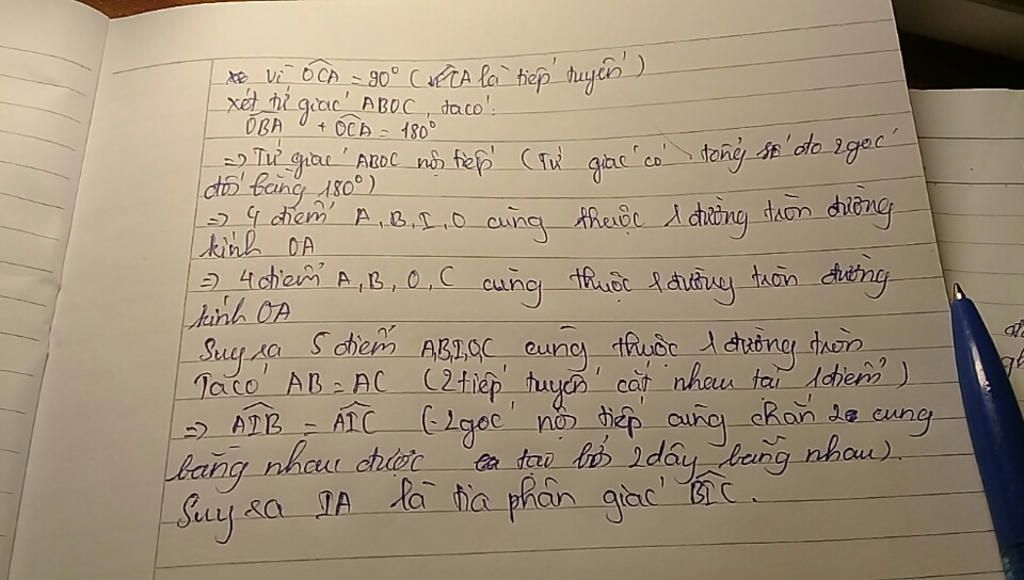 Vì OCA = 90° (CA là tiếp tuyến)
Xét tứ giác ABOC, ta có:
OBA + OCA = 180°
=> Tứ giác ABOC nội tiếp (Tứ giác có tổng số đo 2 góc
đối bằng 180°)
=> 4 điểm A, B, I, O cùng thuộc 1 đường tròn đường
kính OA
=> 4 điểm A, B, O, C cùng thuộc 1 đường tròn đường
kính OA
Suy ra 5 điểm A,B,I,O,C cùng thuộc 1 đường tròn
Ta có AB = AC (2 tiếp tuyến cắt nhau tại 1 điểm)
=> AIB = AIC (2 góc nội tiếp cùng chắn 2 cung
bằng nhau được tạo bởi 2 dây bằng nhau).
Suy ra IA là tia phân giác BIC.